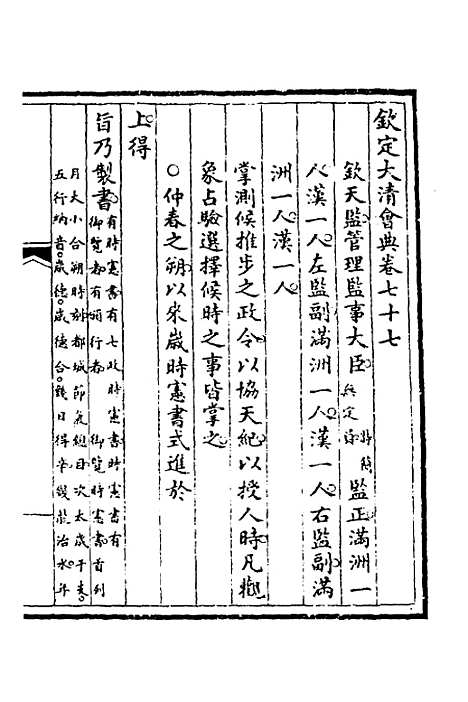 欽定大清會典卷七十七
欽天監管理監事大臣特簡無定員監正滿洲一
人漢一人左監副滿洲一人漢一人右監副滿
洲一人漢一人
掌測候推步之政令以協天紀以授人時凡觀
象占驗選擇候時之事皆掌之
○仲春之朔以來歲時憲書式進於
上得
旨乃製書有時憲書有七政時憲書時憲書有
御覽者有頒行者 御覽時憲書首列
月大小合朔時刻都城節氣總目次太歲干支
五行納音歲德歲德合幾日得辛幾龍治水年